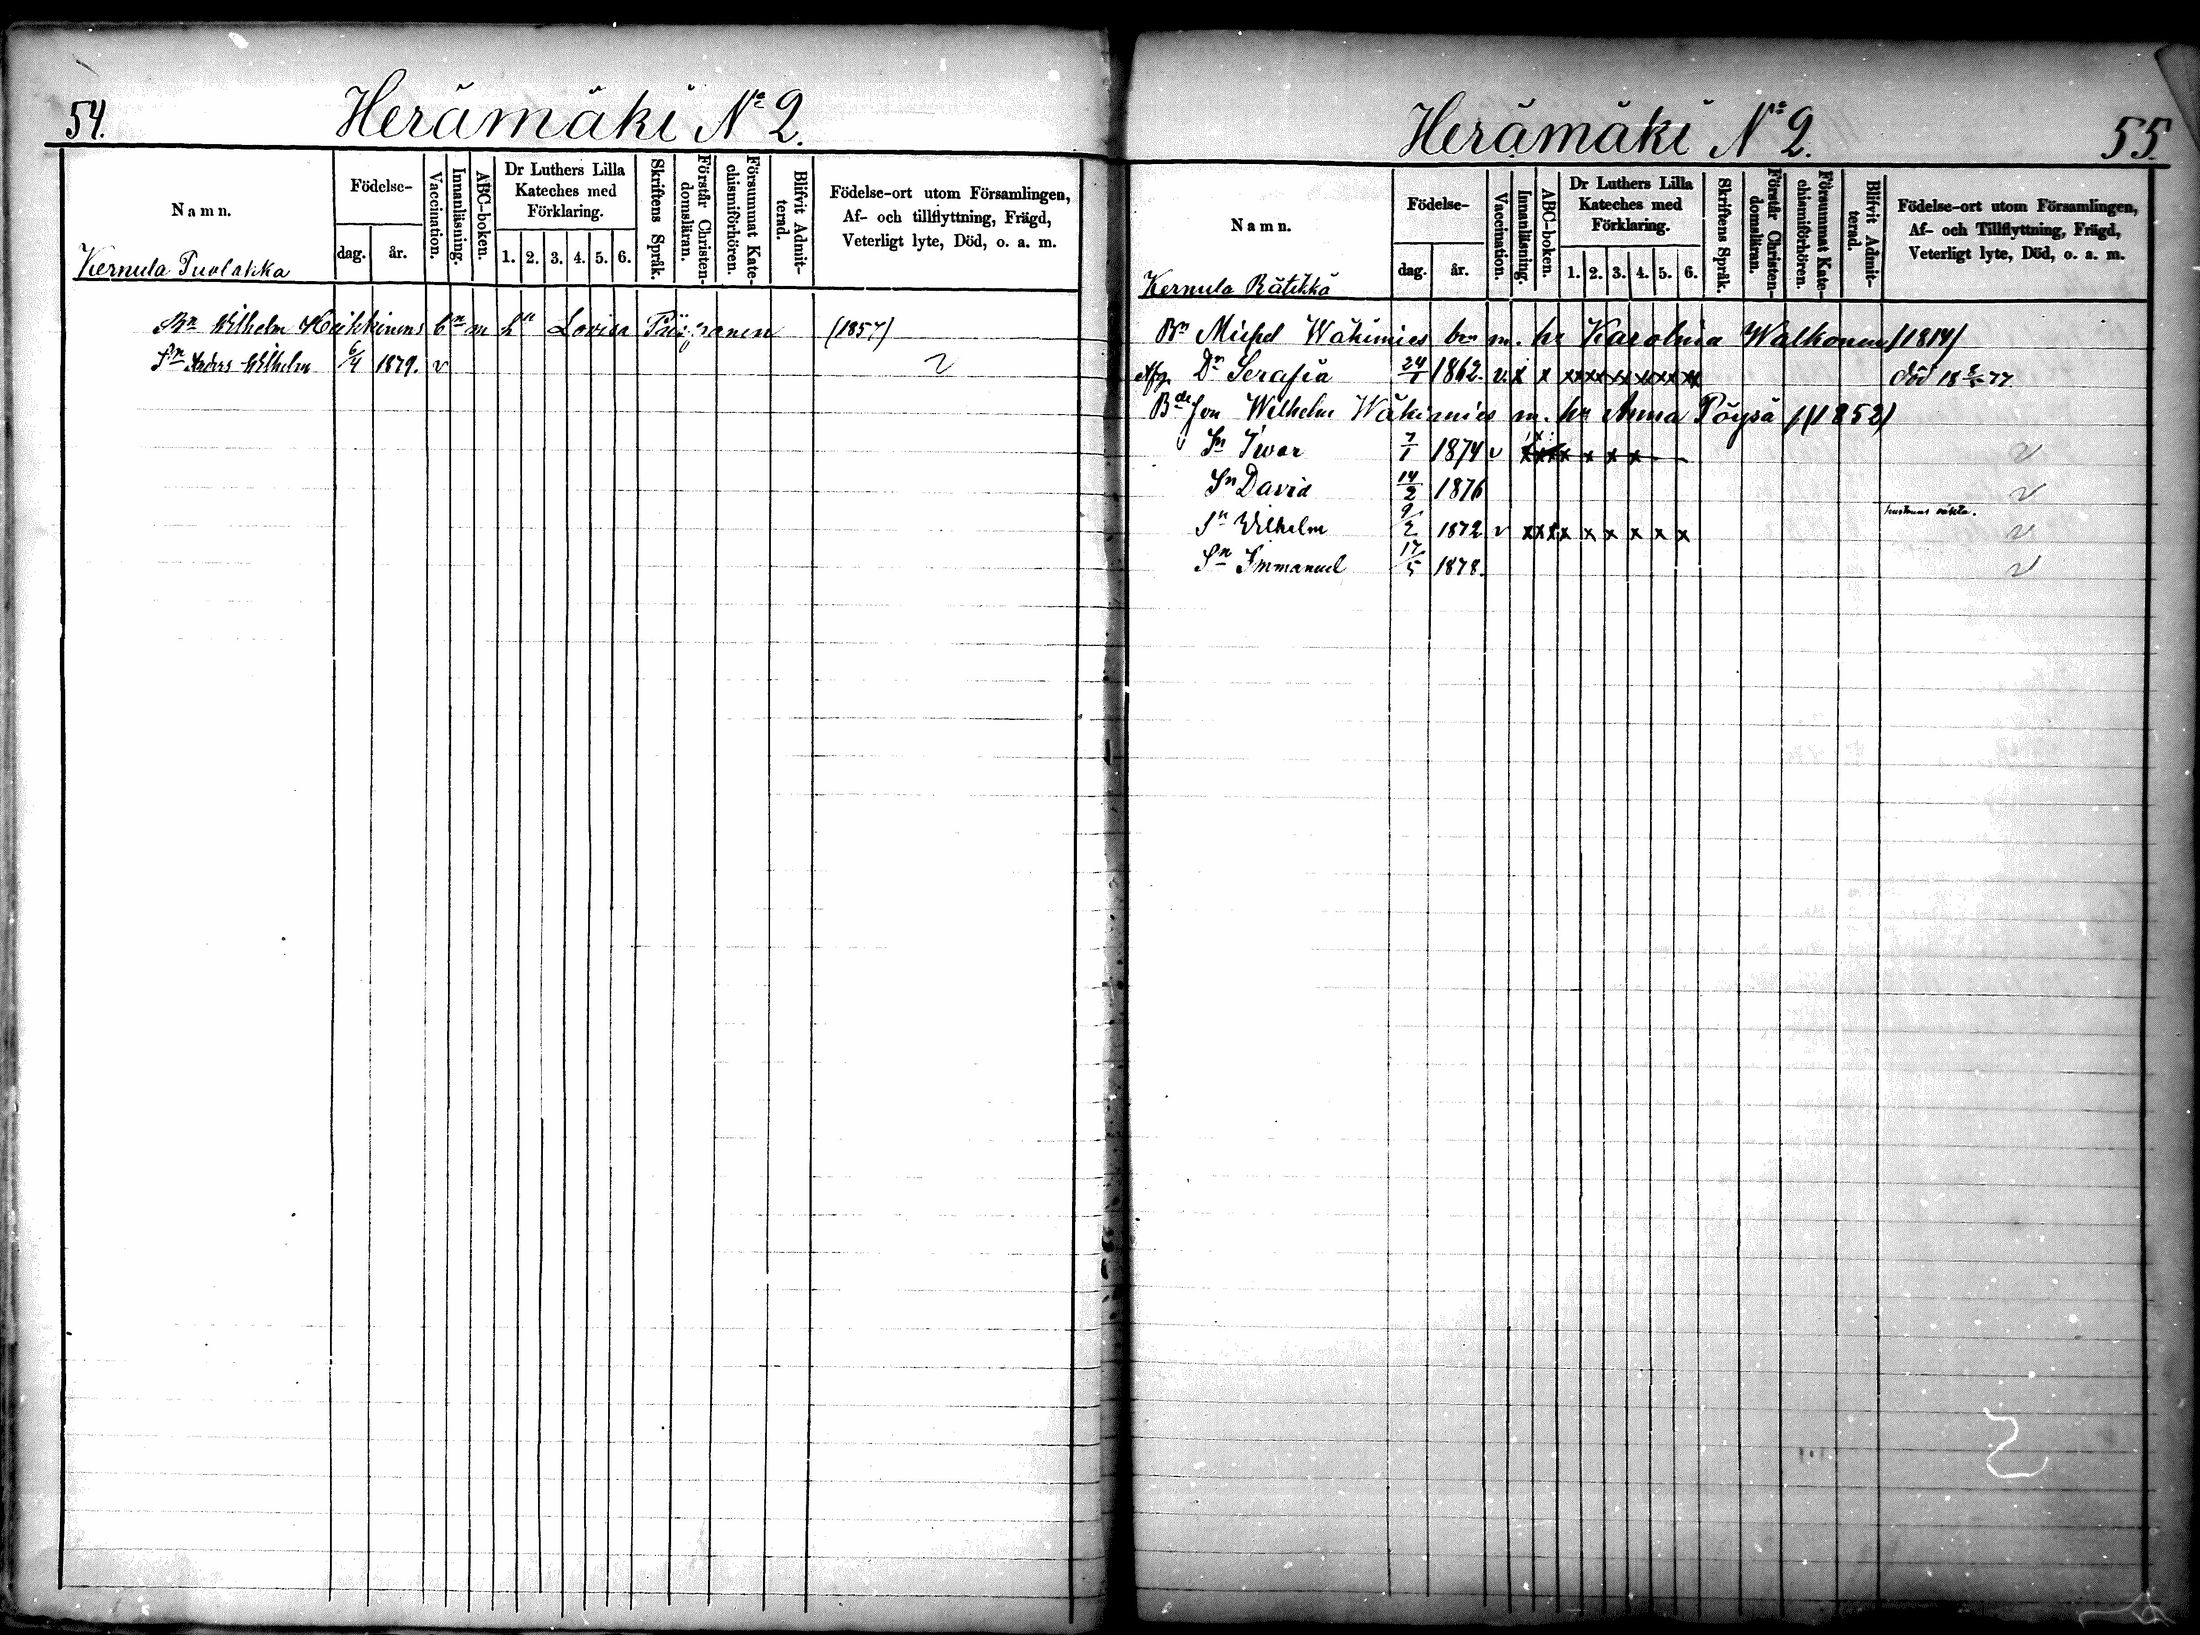 54.
Herämäki No 2.
Namn.
Födelse-
dag.
år.
Vaccination.
Innanläsning.
ABC-boken.
Dr Luthers Lilla
Kateches med
Förklaring.
1. 2. 3. 4. 5. 6.
Skriftens Språk.
Förstår Christen-
domsläran.
Försummat Kate-
chismiförhören.
Blifvit Admit-
terad.
Födelse-ort utom Församlingen,
Af- och tillflyttning, Frägd,
Veterligt lyte, Död, o. a. m.
Kernula Puolakka
Bn Wilhelm Heikkinens bn m hu Lovisa (1857)
Sn Anders Wilhelm 6/4 1879. v
Herämäki No 2.
55.
Namn.
Födelse-
dag.
år.
Vaccination.
Innanläsning.
ABC-boken.
Dr Luthers Lilla
Kateches med
Förklaring.
1. 2. 3. 4. 5. 6.
Skriftens Språk.
Förstår Christen-
domsläran.
Försummat Kate-
chismiförhören.
Blifvit Admit-
terad.
Födelse-ort utom Församlingen,
Af- och Tillflyttning, Frägd,
Veterligt lyte, Död, o. a. m.
Kernula Rätikkä
Bn Michel Wäkimies bn m. hu Karolina Walkonen (1814)
Dr Serafia 24/1 1862. v. x x xx xx xx xx xx xx död
Bde son Wilhelm Wäkimies m. hu Anna Pöysä (1852)
Sn Iwar 7/1 1874 v x x x x x x x
Sn David 14/2 1876
Sn Wilhelm 9/2 1872 v x x x x x x x x x
Sn Immanuel 17/5 1878.